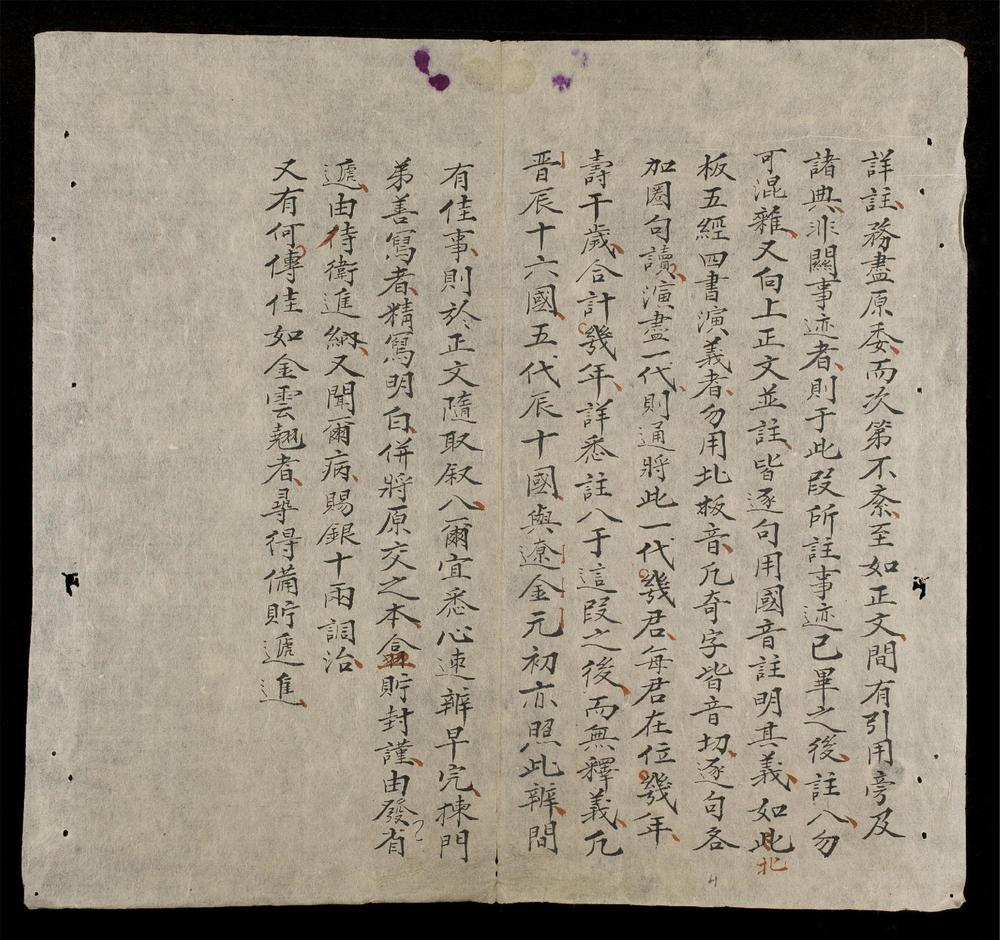 詳註務盡原委而次第不紊至如正文間有引用旁及
諸典非關事迹者則于此段所註事迹已畢之後註八勿
可混雜又向上正文並註皆逐句用國音註明其義如此
北
板五經四書演義者勿用北板音凡奇字皆音切逐句各
加圈句讀演盡一代則通將此一代幾君每君在位幾年
壽干歲合計幾年詳悉註八于這段之後而無釋義凡
晋辰十六國五代辰十國與遼金元初亦照此辨間
有佳事則於正文隨取叙八爾宜悉心速辨早完揀門
弟善寫者精寫明白併將原交之本盒貯封謹由發省
遞由侍衛進納又聞爾病賜銀十兩調治
又有何傳佳如金雲翹者尋得備貯遞進